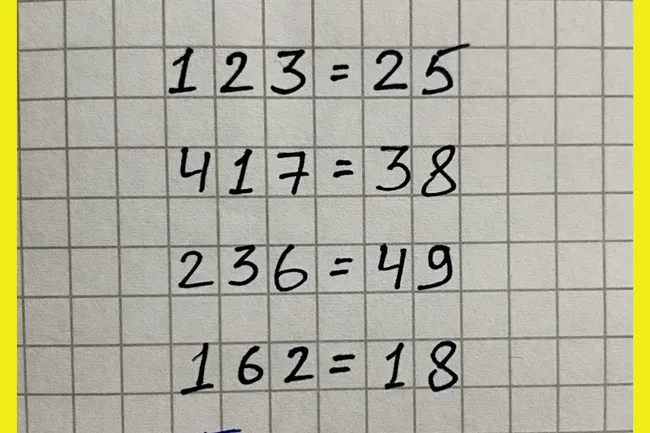 123=25
417=38
236=49
162=18